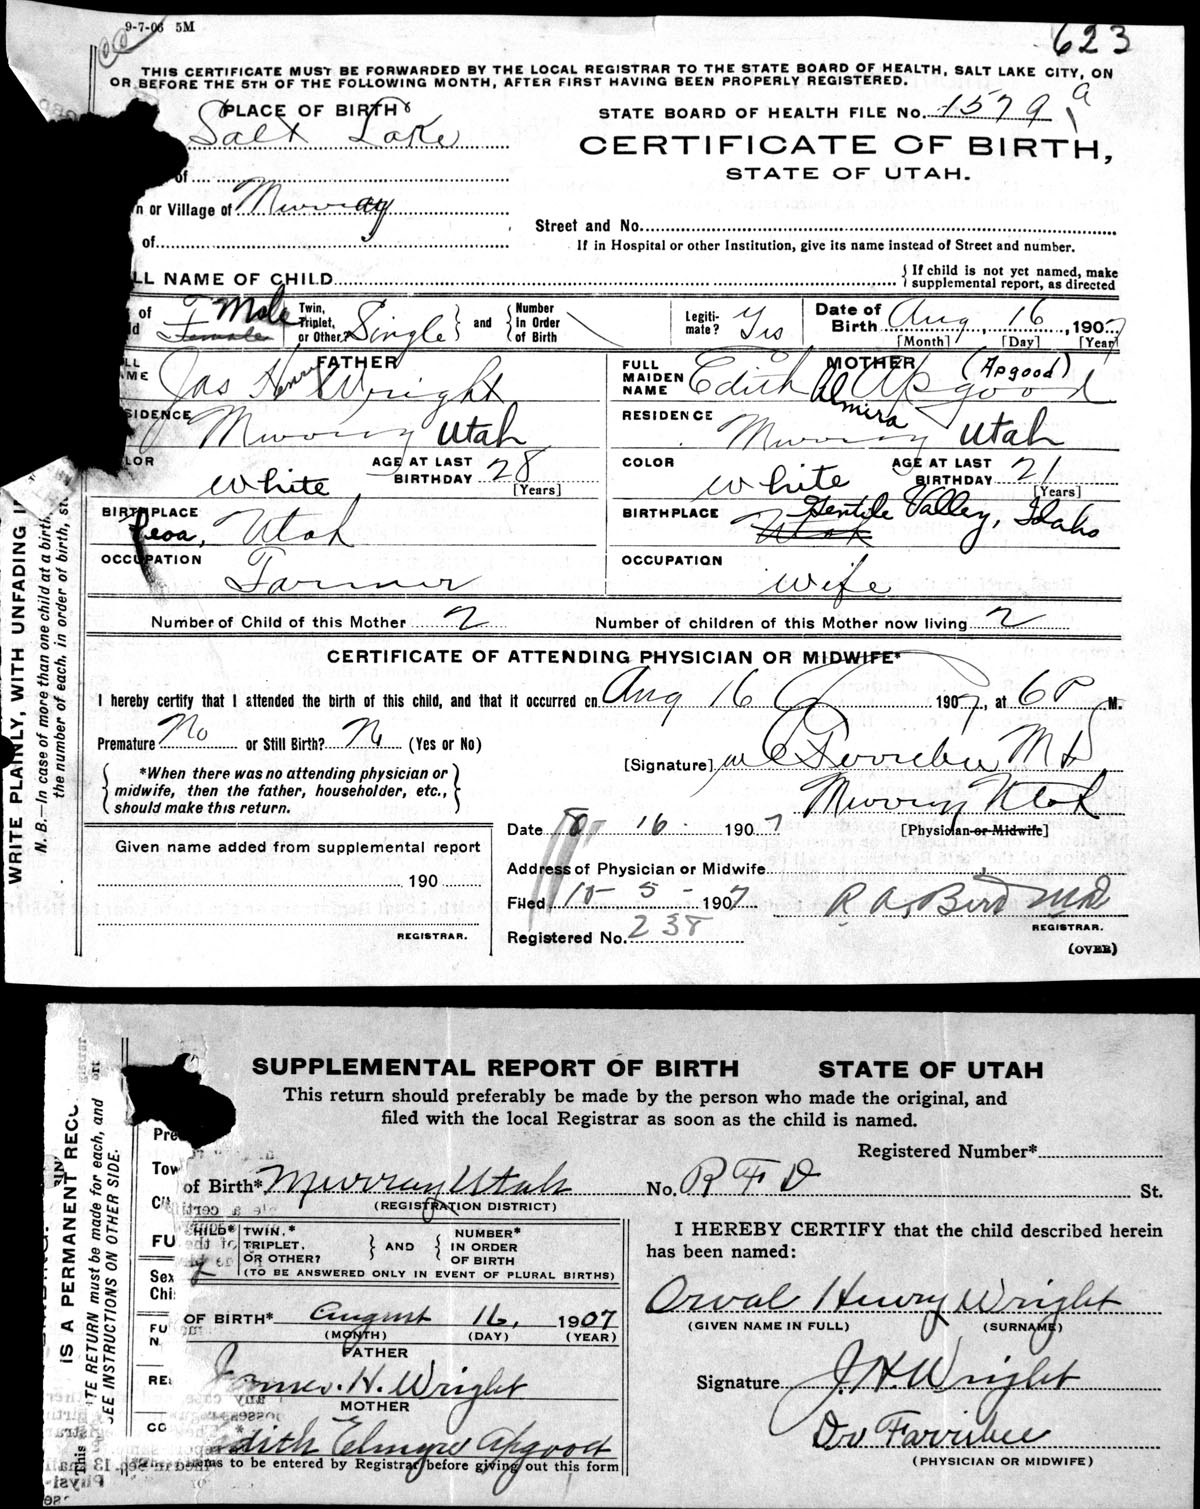 9-7-06 5M
623
THIS CERTIFICATE MUST BE FORWARDED BY THE LOCAL REGISTRAR TO THE STATE BOARD OF HEALTH, SALT LAKE CITY, ON
OR BEFORE THE 5TH OF THE FOLLOWING MONTH, AFTER FIRST HAVING BEEN PROPERLY REGISTERED.
PLACE OF BIRTH
Salt Lake
STATE BOARD OF HEALTH FILE NO. 1579 a
CERTIFICATE OF BIRTH,
STATE OF UTAH.
of
or Village of Murray
Street and No.
of
If in Hospital or other Institution, give its name instead of Street and number.
LL NAME OF CHILD
If child is not yet named, make
supplemental report, as directed
of Male Female
Twin, Triplet, or Other? Single and Number In Order of Birth
Legiti-mate? Yes
Date of Birth Aug 16, 1907
[Month] [Day] [Year]
FATHER
Jas Henry Wright
FULL MAIDEN NAME
MOTHER
Edith Almira Apgood (Apgood)
SIDENCE
Murray Utah
RESIDENCE
Murray Utah
LOR
White
AGE AT LAST BIRTHDAY 28
[Years]
COLOR
White
AGE AT LAST BIRTHDAY 21
[Years]
BIRTHPLACE
Utah
BIRTHPLACE
Utah Gentile Valley, Idaho
OCCUPATION
Farmer
OCCUPATION
wife
Number of Child of this Mother 2
Number of children of this Mother now living 2
CERTIFICATE OF ATTENDING PHYSICIAN OR MIDWIFE*
I hereby certify that I attended the birth of this child, and that it occurred on Aug 16 1907, at 6 P M.
Premature No or Still Birth? No (Yes or No)
*When there was no attending physician or
midwife, then the father, householder, etc.,
should make this return.
[Signature] M D
Murray Utah
[Physician or Midwife]
Date 8 16 1907
Given name added from supplemental report
190
REGISTRAR.
Address of Physician or Midwife
Filed 10-5-1907
R A. Bird MD
REGISTRAR.
Registered No. 238
(OVER)
WRITE PLAINLY, WITH UNFADING I
N. B.—In case of more than one child at a birth,
the number of each, in order of birth, st
SUPPLEMENTAL REPORT OF BIRTH STATE OF UTAH
This return should preferably be made by the person who made the original, and
filed with the local Registrar as soon as the child is named.
Registered Number*
of Birth* Murray Utah No. R F D St.
(REGISTRATION DISTRICT)
CHILD* TWIN,* TRIPLET, OR OTHER? AND NUMBER* IN ORDER OF BIRTH
(TO BE ANSWERED ONLY IN EVENT OF PLURAL BIRTHS)
I HEREBY CERTIFY that the child described herein
has been named:
OF BIRTH* August 16, 1907
(MONTH) (DAY) (YEAR)
Orval Henry Wright
(GIVEN NAME IN FULL) (SURNAME)
FATHER
James. H. Wright
Signature J. H. Wright
MOTHER
Edith Elmyre Apgood
Dr Farrisbee
(PHYSICIAN OR MIDWIFE)
ms to be entered by Registrar before giving out this form
IS A PERMANENT RECO
TE RETURN must be made for each, and
SEE INSTRUCTIONS ON OTHER SIDE.